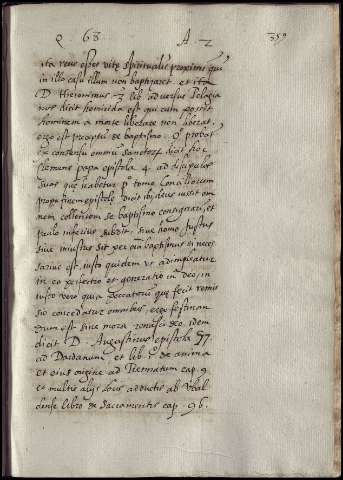 Q 68. A. 2
ita reus esset vitę spiritualis proximi qui
in illo casu illum non baptizaret et ita
D. Hieronimus lib. adversus Pelagia
nos dicit homicida est qui cum possit
hominem a morte liberare non liberat
ergo est preceptum de baptismo. probat
ex consensu omnium sanctorum dicit hoc
Clemens papa epistola 4. ad discipulos
suos que habetur tomo Conciliorum
prope finem epistolę dicit
nem baptismo consignari et
sive homo iustus
sive iniustus sit per baptismus ei neces
sarius est, iusto quidem ut adimpleatur
in eo perfectio et generatio in deo, in
iusto vero peccatorum que fecit remis
sio concedatur omnibus ergo festinan
dum est sine mora renasci deo. idem
dicit D. Augustinus epistola 57.
ad Dardanum et lib. de anima
et eius origine ad cap. 9
et multis alijs locis adductis ab Vbal
dense libro de sacramentis cap. 96.